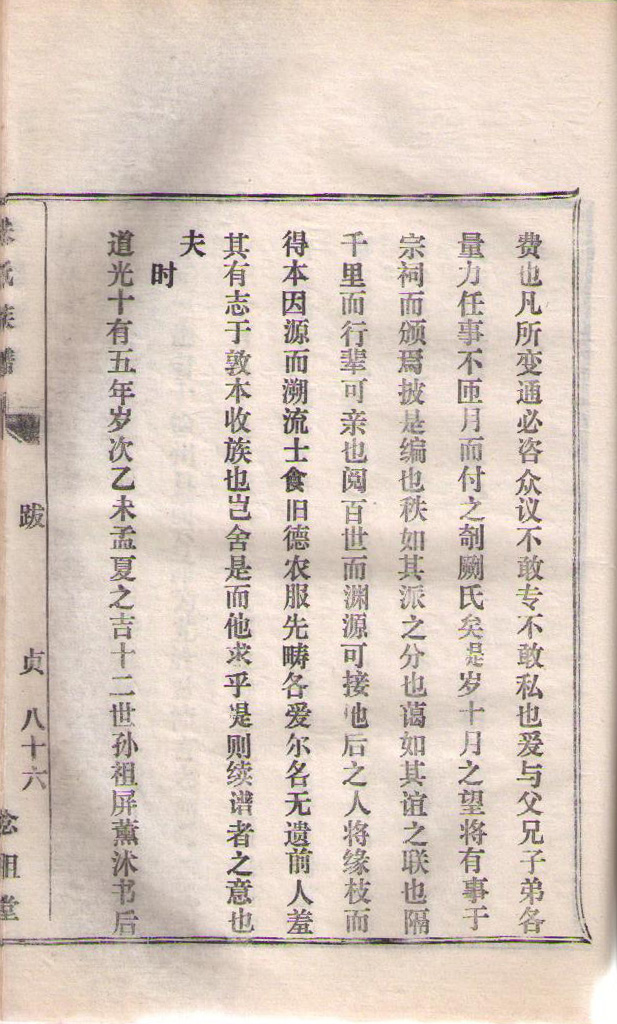 费也凡所变通必咨众议不敢专不敢私也爰与父兄子弟各
量力任事不匝月而付之剞劂氏矣是岁十月之望将有事于
宗祠而颁焉披是编也秩如其派之分也蔼如其谊之联也隔
千里而行辈可亲也阅百世而渊源可接也后之人将缘枝而
得本因源而溯流士食旧德农服先畴各爱尔名无遗前人羞
其有志于敦本收族也岂舍是而他求乎是则续谱者之意也
夫
时
道光十有五年岁次乙未孟夏之吉十二世孙祖屏薰沐书后
氏族谱
跋
贞 八十六
念祖堂